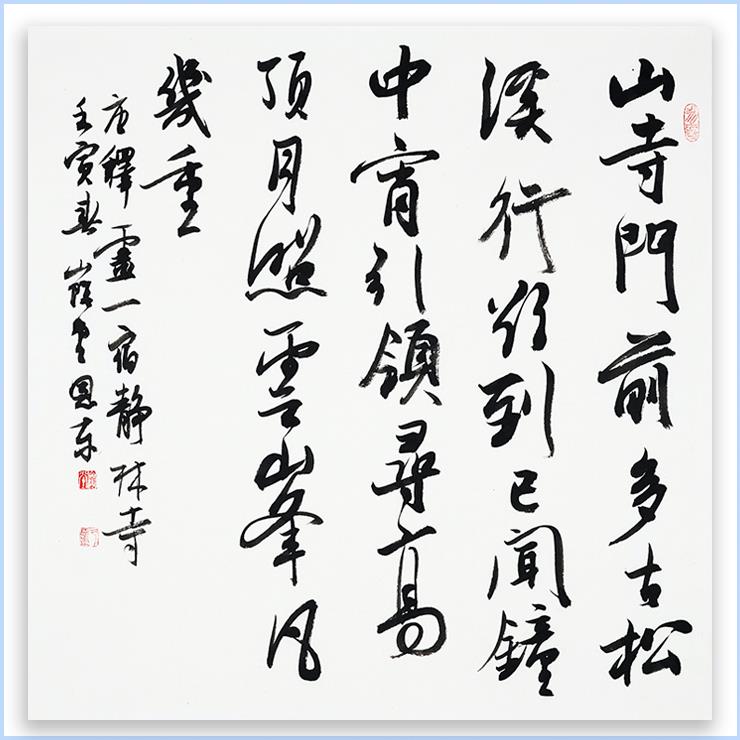 山寺門前多古松
溪行欲到已聞鐘
中宵引領尋高
頂月照雲峯凡
幾重
唐釋霊一宿静林寺
壬寅春山陰恩东